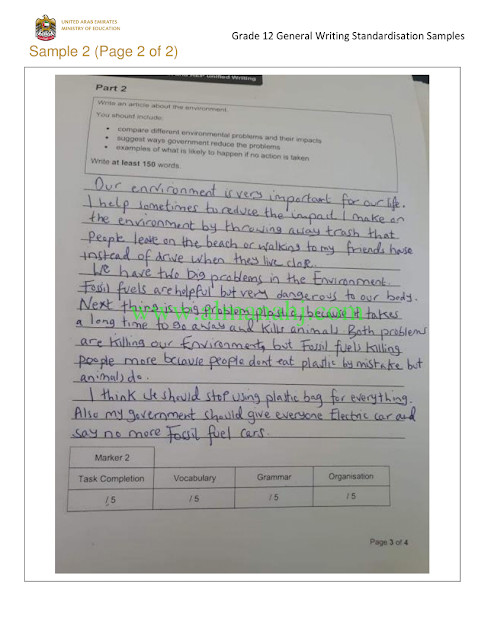 UNITED ARAB EMIRATES
MINISTRY OF EDUCATION
Grade 12 General Writing Standardisation Samples
Sample 2 (Page 2 of 2)
Unified Writing
Part 2
Write an article about the environment.
You should include:
• compare different environmental problems and their impacts
• suggest ways government reduce the problems
• examples of what is likely to happen if no action is taken
Write at least 150 words.
Our environment is very important for our life.
I help sometimes to reduce the impact I make on
the environment by throwing away trash that
People leave on the beach or walking to my friends house
instead of drive when they live close.
We have two big problems in the Environment.
Fossil fuels are helpful but very dangerous to our body.
Next thing is big problem plastic, because it takes
a long time to go away and kills animals. Both problems
are killing our Environment, but Fossil fuels killing
people more because people dont eat plastic by mistake but
animals do.
I think we should stop using plastic bag for everything.
Also my government should give everyone Electric car and
say no more Fossil fuel cars.
Marker 2
Task Completion Vocabulary Grammar Organisation
/ 5 / 5 / 5 / 5
Page 3 of 4